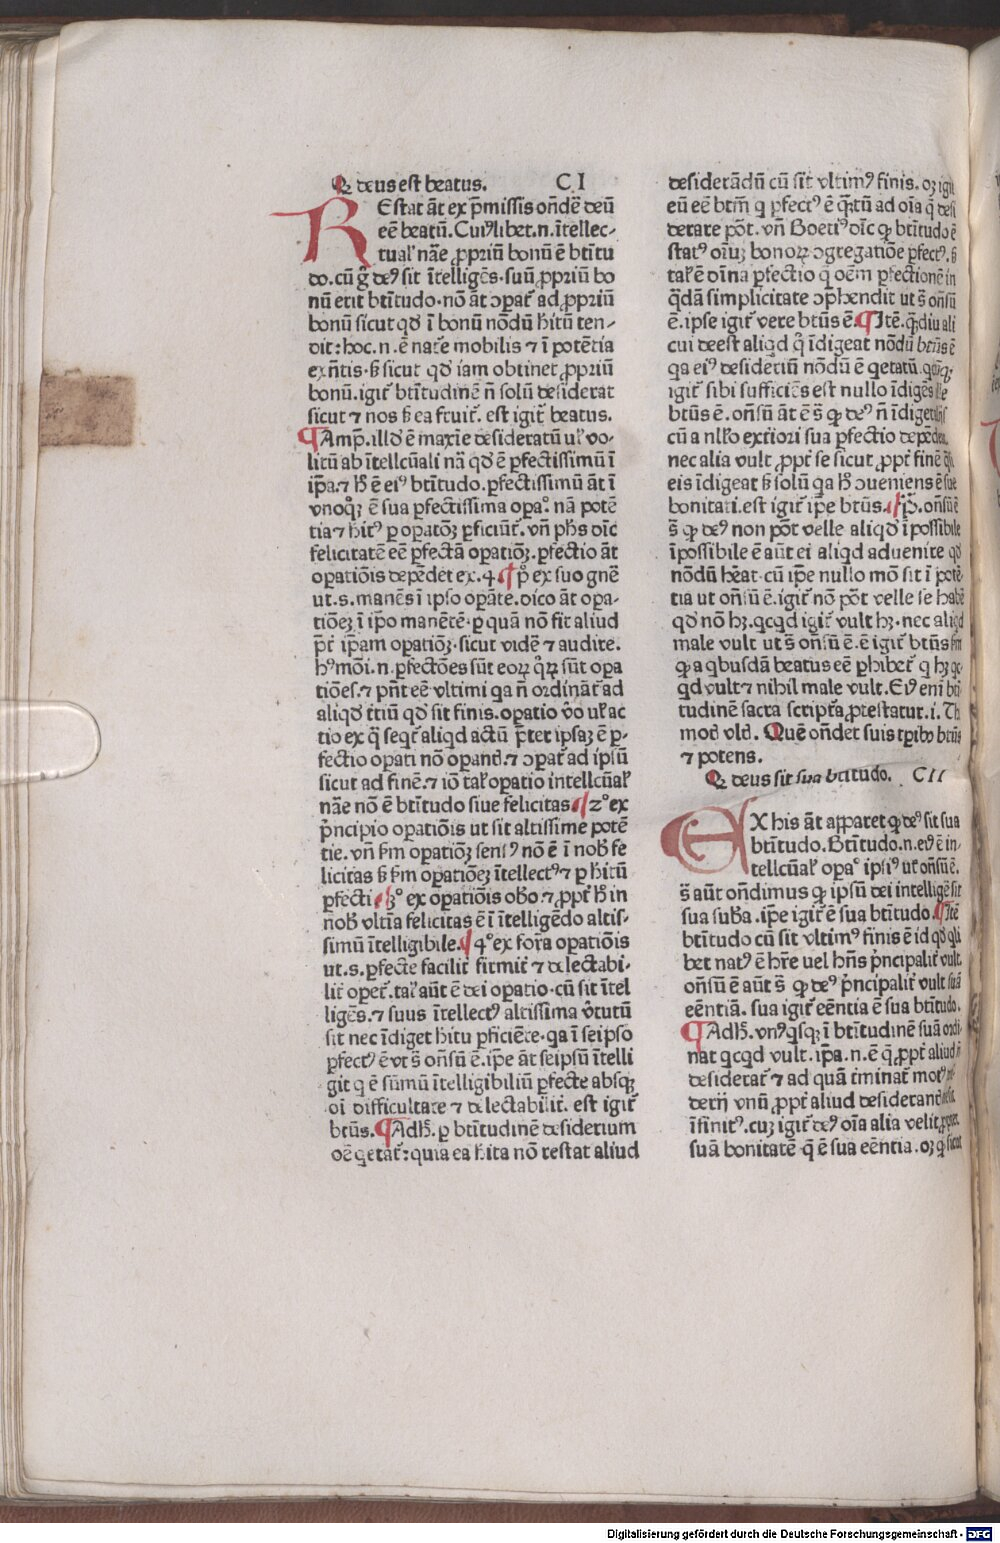 Qꝫ deus est beatus. C I
REstat āt ex p̄missis ondē̄ deū
eē beatū. Cuiꝰlibet.n.ītellec-
tualꝭ nāe ꝓpriū bonū ē btītu
do. cū g̊ deꝰ sit ītelligēs. suū ꝓpriū bo
nū erit btītudo. nō āt ꝯpat̃ ad ꝓpriū
bonū sicut qd ī bonū nōdū hitū ten-
dit: hoc.n.ē nat̃e mobilis ⁊ ī potētia
exn̄tis. s̄ sicut qd iam obtinet ꝓpriū
bonū. igit̃ btītudinē n̄ solū desiderat
sicut ⁊ nos s̄ ea fruit̃. est igit̃ beatus.
¶Amp̄.illd ē maxīe desideratū ul̃ vo-
litū ab ītellcūali nā qd ē ꝑfectissimū ī
ip̄a.⁊ h̄ ē eiꝰ btītudo. ꝑfectissimū āt ī
vnoqꝫ ē sua ꝑfectissima opaᵒ. nā potē
tia ⁊ hitꝰ ꝑ opatōꝫ ꝑficiūt̃. vn̄ ph̄s dīc
felicitatē eē ꝑfectā opatiōꝫ. ꝑfectio āt
opatiōis depēdet ex.4. ¶pᵒ ex suo gn̄e
ut.s.manēs ī ipso opāte. dico āt opa-
tiōeꝫ ī ip̄o manētē. ꝑ quā nō fit aliud
p̄t̃ ip̄am opatiōꝫ. sicut vidē̃ ⁊ audire.
hꝰmōi.n.ꝑfectōes sūt eoꝝ q̊ꝝ sūt opa
tiōes.⁊ pn̄t eē vltimi qa n̄ ordināt̃ ad
aliqd t̃tiū qd sit finis. opatio v̊o ul̃ ac
tio ex q̄ seqt̃ aliqd actū p̄ter ipsaꝫ ē ꝑ-
fectio opati nō opantꝭ.⁊ ꝯpat̃ ad ipsū
sicut ad finē.⁊ iō tal̃ opatio intellcūal̃
nāe nō ē btītudo siue felicitas ¶2ᵒ ex
p̄ncipio opatiōis ut sit altissime potē
tie. vn̄ s̄m opatiōꝫ sensꝰ nō ē ī nob̄ fe
licitas s̄ s̄m opatiōeꝫ ītellectꝰ ⁊ ꝑ hitū
ꝑfecti ¶3ᵒ ex opatiōis ob̄o.⁊ ꝓpt̃ h̄ in
nob̄ vltīa felicitas ē ī ītelligēdo altis-
simū ītelligibile. ¶4ᵒ ex forā opatiōis
ut.s.ꝑfecte facilit̃ firmit̃ ⁊ delectabi-
lit̃ opet̃. tal̃ aūt ē dei opatio. cū sit ītel
ligēs.⁊ suus ītellectꝰ altissima v̊tutū
sit nec īdiget hitu ꝑficiēte. qa ī seipso
ꝑfectꝰ ē vt s̄ on̄sū ē. ip̄e āt seipsū ītelli
git q ē sūmū ītelligibiliū ꝑfecte absqꝫ
oī difficultate ⁊ delectabilit̃. est igit̃
btūs. ¶Adh̄.ꝑ btītudinē desiderium
oē qetat̃: quia ea hita nō restat aliud
desiderādū cū sit vltimꝰ finis. oꝫ igit̃
eū eē btm̄ q ꝑfectꝰ ē q̄tū ad oīa q̄ desi
derare pōt. vn̄ Boetiꝰ dīc ꝙ btītudo ē
statꝰ oīuꝫ bonoꝝ ꝯgregatiōe ꝑfectꝰ. s̄
tal̃ ē dīna ꝑfectio q̄ oēm ꝑfectionē in
q̄dā simplicitate ꝯp̄hendit ut s̄ on̄sū
ē. ipse igit̃ vere btūs ē. ¶Itē. q̄diu ali
cui deest aliqd q̊ īdigeat nōdū btūs ē
qa eiꝰ desideriū nōdū ē qetatū.
igit̃ sibi sufficiēs est nullo īdigēs
btūs ē. on̄sū āt ē s̄ ꝙ deꝰ n̄ īdiget
cū a nll̃o ext̃iori sua ꝑfectio depēdeat.
nec alia vult ꝓpt̃ se sicut ꝓpt̃ finē
eis īdigeat s̄ solū qa h̄ ꝯueniens ē sue
bonitati. est igit̃ ip̄e btūs. ¶P̄.on̄sū ē
s̄ ꝙ deꝰ non pōt velle aliqd īpossibile
īpossibile ē aūt ei aliqd aduenire qd
nōdū heat. cū ip̄e nullo mō sit ī potē-
tia ut on̄sū ē. igit̃ nō pōt velle se habē̃
qd nō hꝫ. qcqd igit̃ vult hꝫ. nec aliqd
male vult ut s̄ on̄sū ē. ē igit̃ btūs s̄m
ꝙ a qbusdā beatus eē ꝑhibet̃ q hꝫ qc
qd vult ⁊ nihil male vult. Eiꝰ enī btī
tudinē sacra script̃a ꝓtestatur.i. Th
moth vltꝭ. Quē on̄det suis tꝑibꝫ btūs
⁊ potens.
Qꝫ deus sit sua btitudo. CII
EX his āt apparet ꝙ deꝰ sit sua
btītudo. Btītudo.n.eiꝰ ē in-
tellcūal̃ opaᵒ ipsiꝰ ut on̄sū ē.
s̄ aūt on̄dimus ꝙ ipsū dei intelligē̃ sit
sua sub̄a. ip̄e igit̃ ē sua btītudo. ¶Itē
btītudo cū sit vltimꝰ finis ē id qd qli
bet natꝰ ē hr̄e uel hn̄s p̄ncipalit̃ vult.
on̄sū ē aūt s̄ ꝙ deꝰ p̄ncipalit̃ vult suā
eēntiā. sua igit̃ eēntia ē sua btītudo.
¶Adh̄.vnꝰqsqꝫ ī btītudinē suā ordi
nat qcqd vult. ip̄a.n.ē q̄ ꝓpt̃ aliud n̄
desiderat̃ ⁊ ad quā t̃minat̃ motꝰ
derij vnū ꝓpt̃ aliud desiderantꝭ
īfinitꝰ. cuꝫ igit̃ deꝰ oīa alia velit ꝓpter
suā bonitatē q̄ ē sua eēntia. oꝫ ꝙ sicut
Digitalisierung gefördert durch die Deutsche Forschungsgemeinschaft - DFG